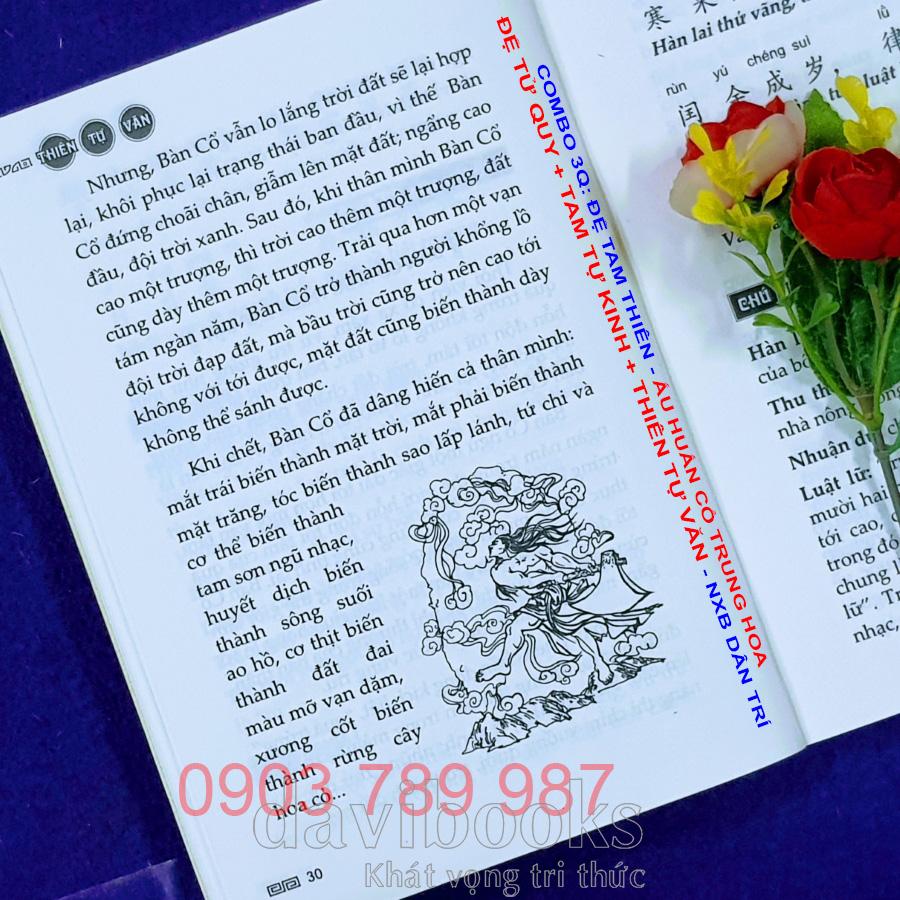 THIÊN TỰ VĂN
Nhưng, Bàn Cổ vẫn lo lắng trời đất sẽ lại hợp
lại, khôi phục lại trạng thái ban đầu, vì thế Bàn
Cổ đứng choãi chân, giẫm lên mặt đất; ngẩng cao
đầu, đội trời xanh. Sau đó, khi thân mình Bàn Cổ
cao một trượng, thì trời cao thêm một trượng, đất
cũng dày thêm một trượng. Trải qua hơn một vạn
tám ngàn năm, Bàn Cổ trở thành người khổng lồ
đội trời đạp đất, mà bầu trời cũng trở nên cao tới
không với tới được, mặt đất cũng biến thành dày
không thể sánh được.
Khi chết, Bàn Cổ đã dâng hiến cả thân mình:
mắt trái biến thành mặt trời, mắt phải biến thành
mặt trăng, tóc biến thành sao lấp lánh, tứ chi và
cơ thể biến thành
tam sơn ngũ nhạc,
huyết dịch biến
thành sông suối
ao hồ, cơ thịt biến
thành đất đai
màu mỡ vạn dặm,
xương cốt biến
thành rừng cây
hoa cỏ...
30
COMBO 3Q: ĐỆ TAM THIÊN - ẤU HUẤN CỔ TRUNG HOA
ĐỆ TỬ QUY + TAM TỰ KINH + THIÊN TỰ VĂN - NXB DÂN TRÍ
寒 來
Hàn lai thử vãng,
rùn yú chéng suì lǜ
闰 余 成 岁, 律
luật
CHÚ
Hàn
của
Thu
nhà nông
Nhuận dư
Luật lữ.
mười hai
tới cao,
trong đó
chung
lữ”.
nhạc,
0903 789 987
davibooks
Khát vọng tri thức